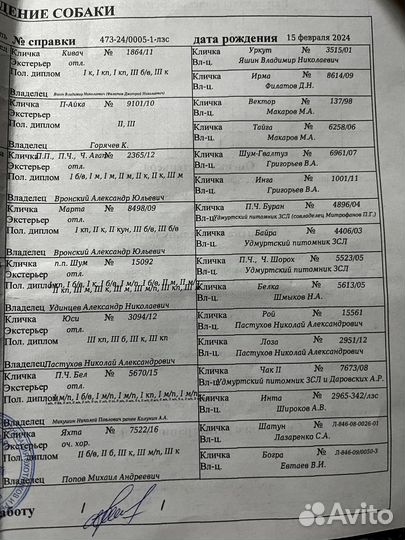 ДЕНИЕ СОБАКИ
№ справки 473-24/0005-1-лзс дата рождения 15 февраля 2024
Кличка Кивач № 1864/11
Экстерьер отл.
Пол. диплом I к, I кп, I кп, III б/в, III к
Владелец
Кличка П-Айка № 9101/10
Экстерьер отл.
Пол. диплом II, III
Владелец Горячев К.
Кличка П.П., П.Ч., Ч. Агат № 2365/12
Экстерьер отл.
Пол. диплом I б/в, I м, I м, II м, II к, II к, III м
Владелец Вронский Александр Юльевич
Кличка Марта № 8498/09
Экстерьер отл.
Пол. диплом I кп, II к, II кун, III б/в, III кп
Владелец Вронский Александр Юльевич
Кличка п.п. Шум № 15092
Экстерьер отл.
Пол. диплом
Владелец Удинцев Александр Николаевич
Кличка Юси № 3094/12
Экстерьер отл.
Пол. диплом III кп, III б, III к, III кп
Владелец Пастухов Николай Александрович
Кличка П.Ч. Бел № 5670/15
Экстерьер отл.
Пол. диплом
Владелец
Кличка Яхта № 7522/16
Экстерьер оч. хор.
Пол. диплом
Владелец Попов Михаил Андреевич
Кличка Уркут № 3515/01
Вл-ц. Яшин Владимир Николаевич
Кличка Ирма № 8614/09
Вл-ц. Филатов Д.Н.
Кличка Вектор № 137/98
Вл-ц. Макаров М.А.
Кличка Тайга № 6258/06
Вл-ц. Макаров М.А.
Кличка Шум-Гвалтуз № 6961/07
Вл-ц. Григорьев В.А.
Кличка Инга № 1001/11
Вл-ц. Григорьев В.А.
Кличка П.Ч. Буран № 4896/04
Вл-ц. Удмуртский питомник ЗСЛ (совладелец Митрофанов П.Г.)
Кличка Байра № 4406/03
Вл-ц. Удмуртский питомник ЗСЛ
Кличка П.Ч., Ч. Шорох № 5523/05
Вл-ц. Удмуртский питомник ЗСЛ
Кличка Белка № 5613/05
Вл-ц. Шмыков Н.А.
Кличка Рой № 15561
Вл-ц. Пастухов Николай Александрович
Кличка Лоза № 2951/12
Вл-ц. Пастухов Николай Александрович
Кличка Чак II № 7673/08
Вл-ц. Удмуртский питомник ЗСЛ и Даровских А.Р.
Кличка Инта № 2965-342/лзс
Вл-ц. Широков А.В.
Кличка Шатун № Л-846-08-0026-01
Вл-ц. Лазаренко С.А.
Кличка Богра № Л-846-09/0050-3
Вл-ц. Евтаев В.И.
аботу
Avito